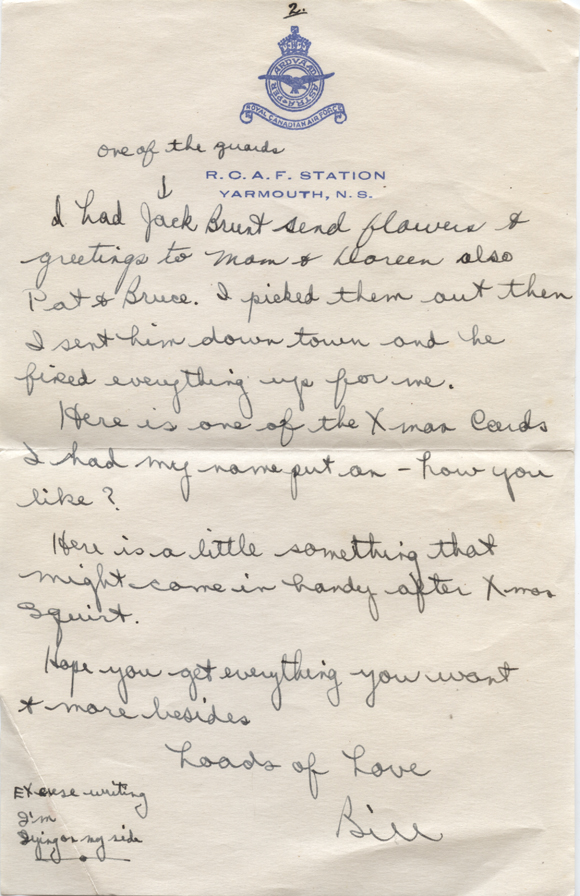 2.
ROYAL CANADIAN AIR FORCE
one of the guards
R.C.A.F. STATION
YARMOUTH, N.S.
I had Jack Brunt send flowers &
greetings to Mom & Doreen also
Pat & Bruce. I picked them out then
I sent him down town and he
fixed everything up for me.
Here is one of the Xmas Cards
I had my name put on - how you
like?
Here is a little something that
might come in handy after Xmas
Squirt.
Hope you get everything you want
& more besides
Loads of Love
Bill
Excuse writing
I'm
lying on my side